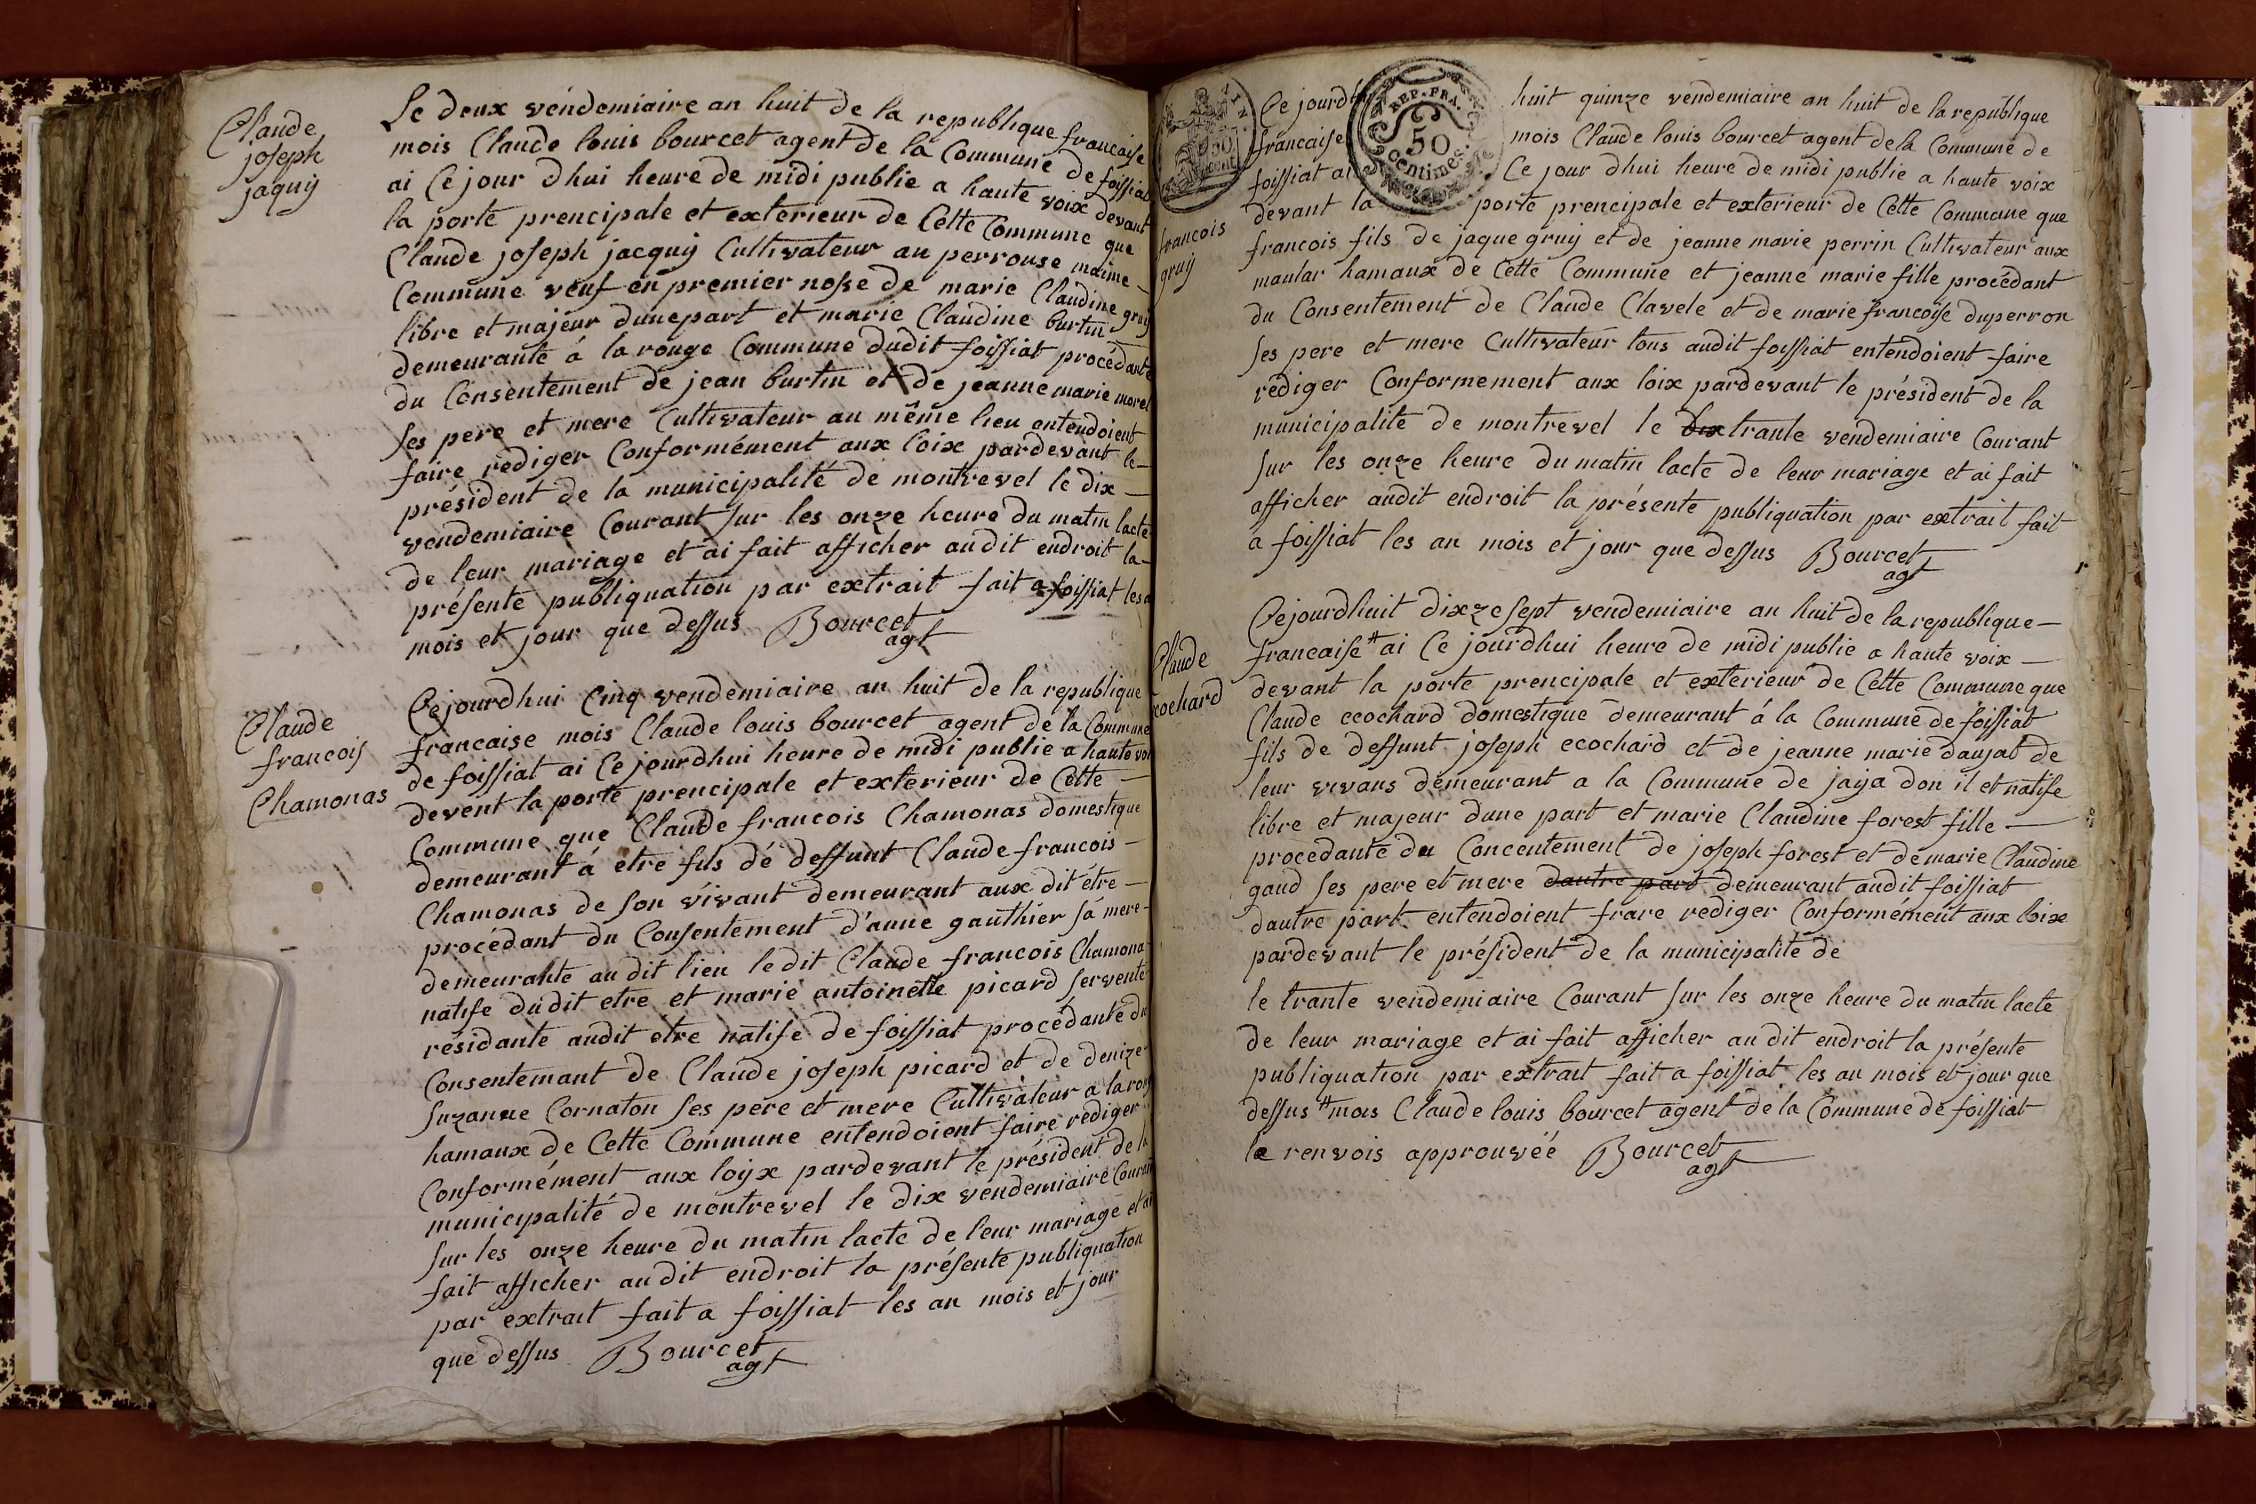 Claude
joseph
jaquij
Le deux véndemiaire an huit de la republique francaise
mois Claude louis bourcet agent de la Commune de foissiat
ai Ce jour dhui heure de midi publie a haute voix devant
la porte prencipale et exterieur de Cette Commune que
Claude joseph jacquij Cultivateur au perrouse maime
Commune veuf en premier nosse de marie Claudine gruij
libre et majeur dune part et marie Claudine burtin
demeurante á la rouge Commune dudit foissiat procédante
du Consentement de jean burtin et de jeanne marie morel
ses pere et mere Cultivateur au même lieu entendoient
faire rédiger Conformément aux loix pardevant le
président de la municipalité de montrevel le dix
vendemiaire Courant sur les onze heure du matin lacte
de leur mariage et ai fait afficher audit endroit la
présente publiquation par extrait fait a foissiat les
mois et jour que dessus Bourcet
agt
Claude
francois
Chamonas
Cejourdhui Cinq vendemiaire an huit de la republique
francaise mois Claude louis bourcet agent de la Commune
de foissiat ai Ce jourdhui heure de midi publie a haute voi
devent la porte prencipale et exterieur de Cette
Commune que Claude francois Chamonas domestique
demeurant á etre fils dé deffunt Claude francois
Chamonas de son vivant demeurant aux dit étre
procédant du Consentement d'anne gauthier sá mere
demeurante audit lieu ledit Claude francois Chamona
natife dudit etre et marie antoinette picard servente
résidante audit étre natife de foissiat procédante du
Consentemant de Claude joseph picard et de denize
suzanne Cornaton ses pere et mere Cultivateur a la
hamaux de Cette Commune entendoient faire rédiger
Conformément aux loijx pardevant le président de la
municipalité de montrevel le dix vendemiaire Courant
sur les onze heure du matin lacte de leur mariage et ai
fait afficher audit endroit la présente publiquation
par extrait fait a foissiat les an mois et jour
que dessus Bourcet
agt
REP. FRA.
50
centimes.
francois
gruij
Ce jourd huit quinze vendemiaire an huit de la republique
francaise mois Claude louis bourcet agent de la Commune de
foissiat ai Ce jour dhui heure de midi publie a haute voix
devant la porte prencipale et exterieur de Cette Commune que
francois fils de jaque gruij et de jeanne marie perrin Cultivateur aux
manlar hamaux de Cette Commune et jeanne marie fille procédant
du Consentement de Claude Clavele et de marie francoise duperron
ses pere et mere Cultivateur tous audit foissiat entendoient faire
rédiger Conformement aux loix pardevant le président de la
municipalité de montrevel le dix trante vendemiaire Courant
sur les onze heure du matin lacte de leur mariage et ai fait
afficher audit endroit la présente publiquation par extrait fait
a foissiat les an mois et jour que dessus Bourcet
agt
Claude
ecochard
Cejourdhuit dixzesept vendemiaire an huit de la republique
francaise # ai Ce jourdhui heure de midi publie a haute voix
devant la porte prencipale et exterieur de Cette Commune que
Claude ecochard domestique demeurant á la Commune de foissiat
fils de deffunt joseph ecochard et de jeanne marie daujat de
leur vivans demeurant a la Commune de jaija don il et natife
libre et majeur dune part et marie Claudine forest fille
procedante du Concentement de joseph forest et de marie Claudine
gaud ses pere et mere dautre part demeurant audit foissiat
dautre part entendoient frare rediger Conformément aux loix
pardevant le président de la municipalité de
le trante vendemiaire Courant sur les onze heure du matin lacte
de leur mariage et ai fait afficher audit endroit la présente
publiquation par extrait fait a foissiat les an mois et jour que
dessus # mois Claude louis bourcet agent de la Commune de foissiat
le renvois approuvéé Bourcet
agt